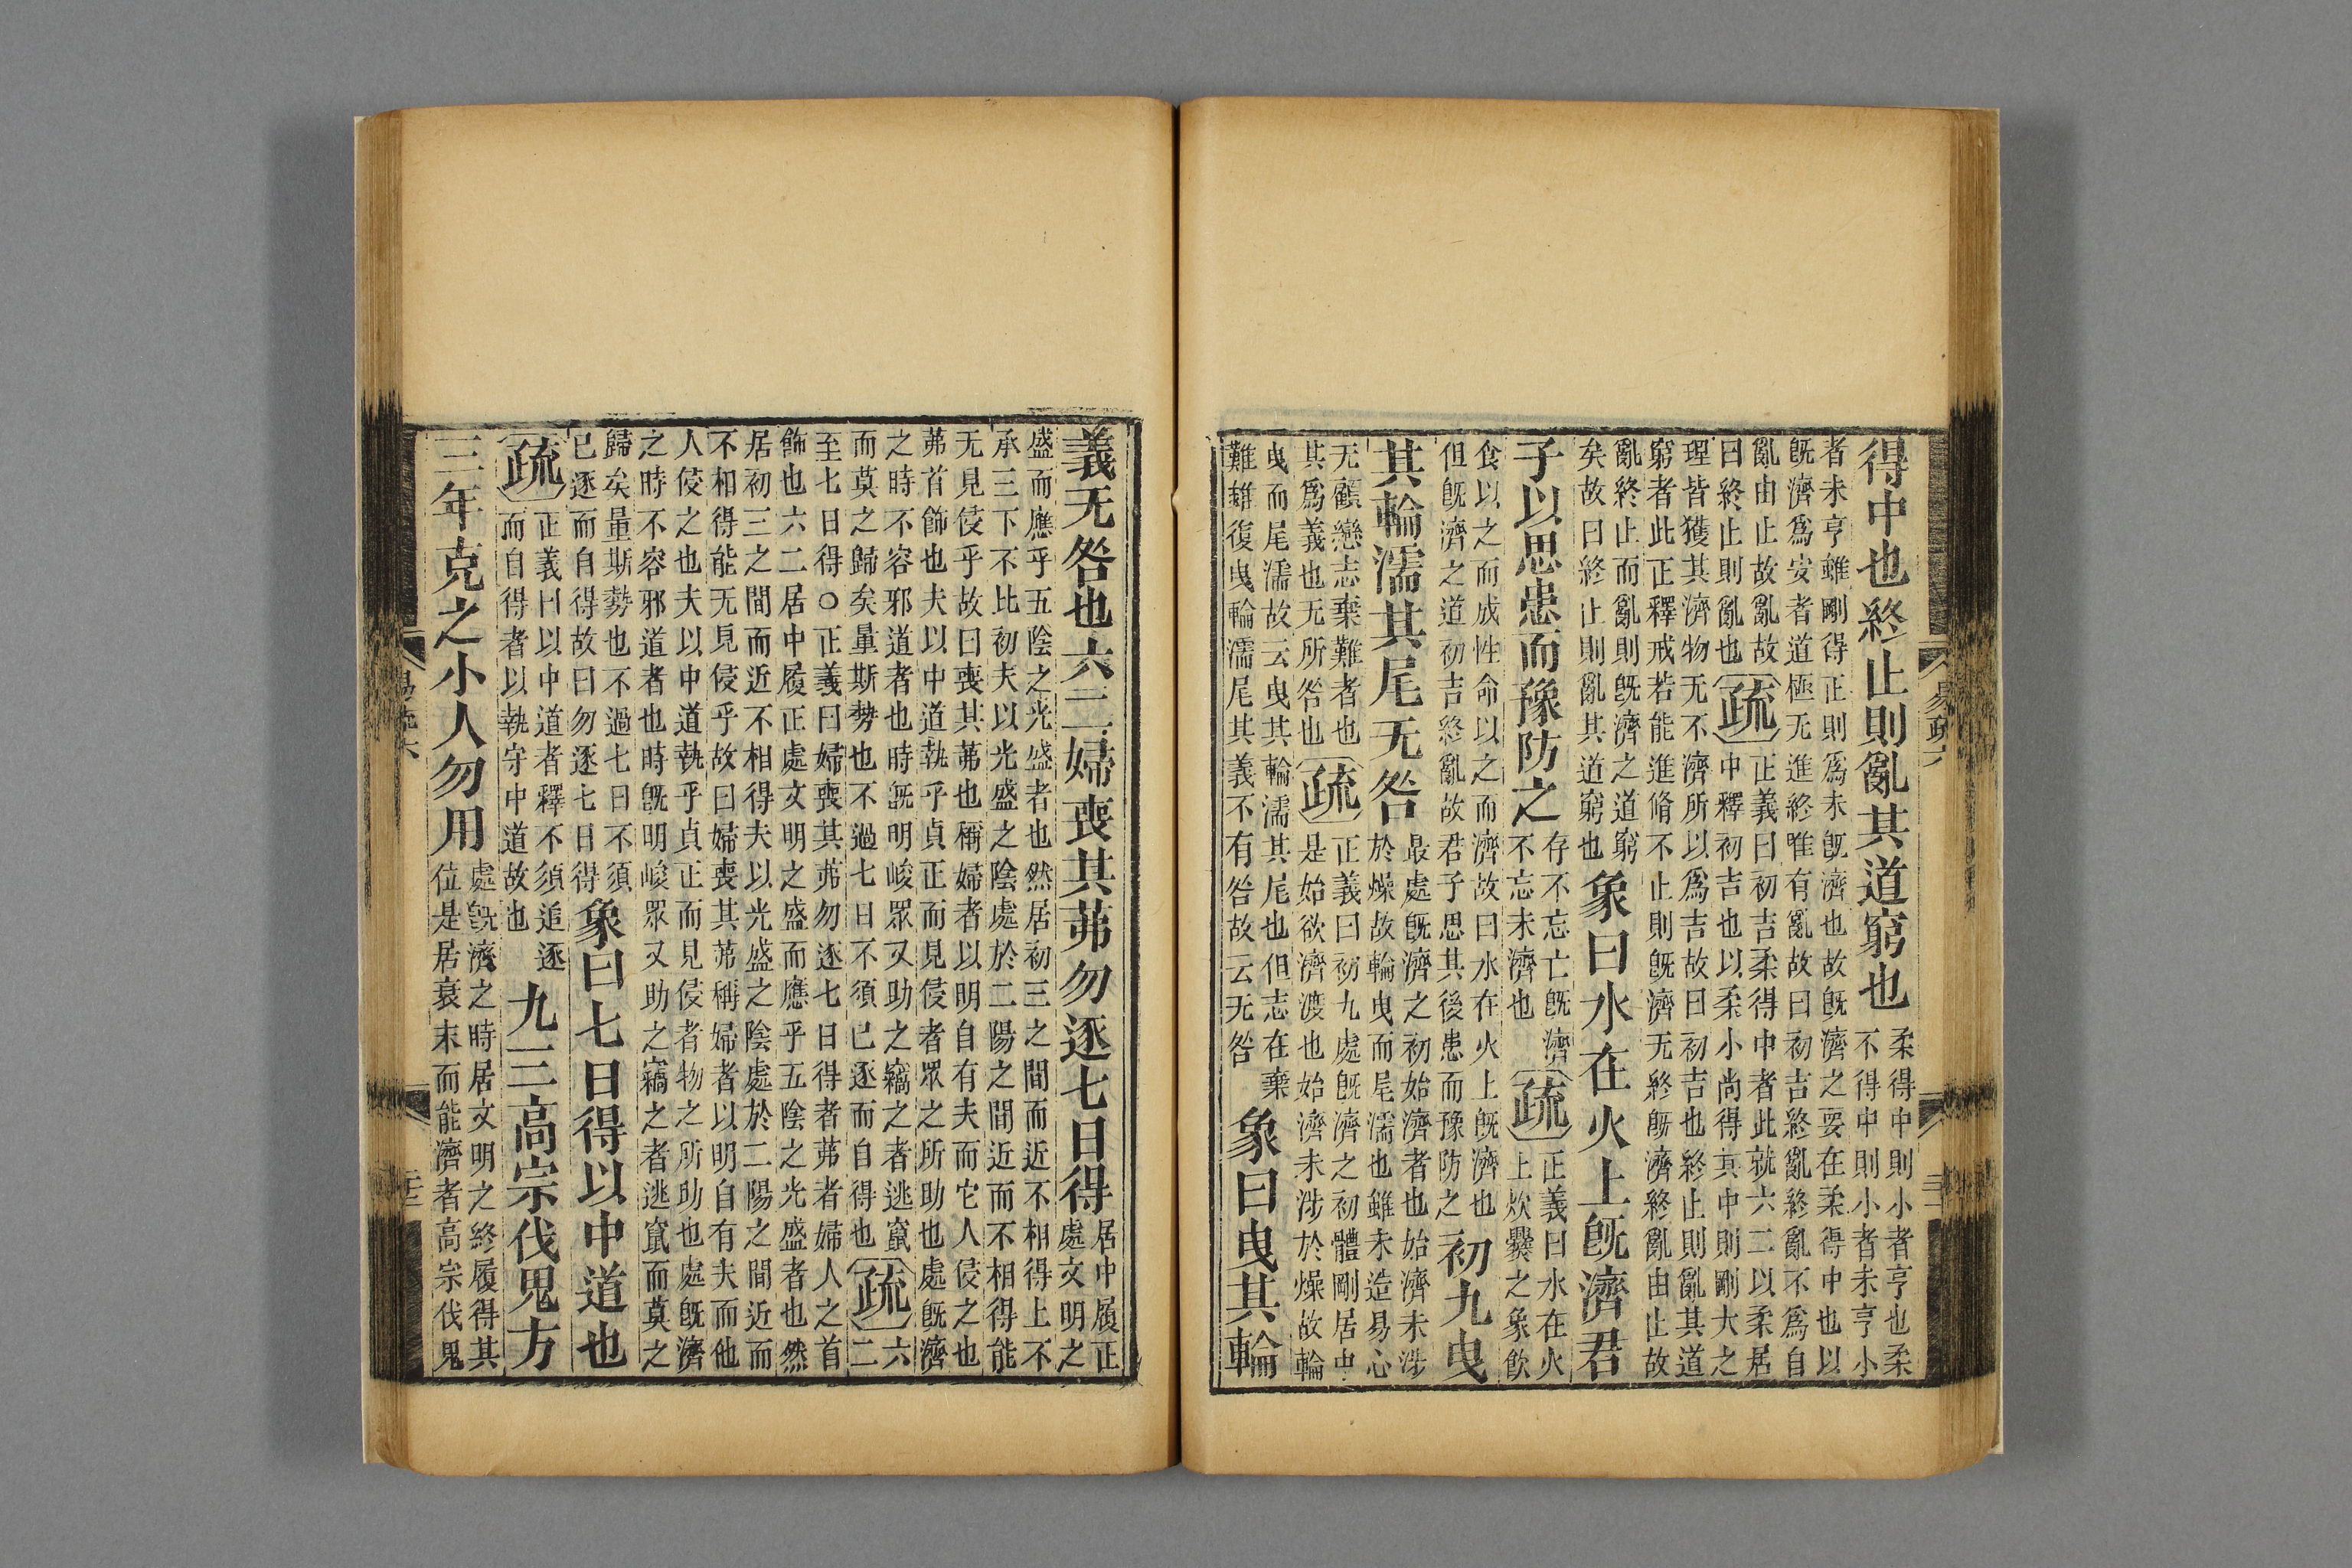 得中也終止則亂其道窮也
柔得中則小者亨也柔
不得中則小者未亨小
者未亨雖剛得正則爲未旣濟也故旣濟之要在柔得中也以
旣濟爲安者道極无進終唯有亂故曰初吉終亂終亂不爲自
亂由止故亂故
曰終止則亂也
疏
正義曰初吉柔得中者此就六二以柔居
中釋初吉也以柔小尚得其中則剛大之
理皆獲其濟物无不濟所以爲吉故曰初吉也終止則亂其道
窮者此正釋戒若能進脩不止則旣濟无終旣濟終亂由止故
亂終止而亂則旣濟之道窮
矣故曰終止則亂其道窮也
象曰水在火上旣濟君
子以思患而豫防之
存不忘亡旣濟
不忘未濟也
疏
正義曰水在火
上炊爨之象飲
食以之而成性命以之而濟故曰水在火上旣濟也
但旣濟之道初吉終亂故君子思其後患而豫防之
初九曳
其輪濡其尾无咎
最處旣濟之初始濟者也始濟未涉
於燥故輪曳而尾濡也雖未造易心
无顧戀志棄難者也
其爲義也无所咎也
疏
正義曰初九處旣濟之初體剛居中
是始欲濟渡也始濟未涉於燥故輪
曳而尾濡故云曳其輪濡其尾也但志在棄
難雖復曳輪濡尾其義不有咎故云无咎
象曰曳其輪
義无咎也六二婦喪其茀勿逐七日得
居中履正
處文明之
盛而應乎五陰之光盛者也然居初三之間而近不相得上不
承三下不比初夫以光盛之陰處於二陽之間近而不相得能
无見侵乎故曰喪其茀也稱婦者以明自有夫而它人侵之也
茀首飾也夫以中道執乎貞正而見侵者眾之所助也處旣濟
之時不容邪道者也時旣明峻眾又助之竊之者逃竄
而莫之歸矣量斯勢也不過七日不須已逐而自得也
疏
六
二
至七日得○正義曰婦喪其茀勿逐七日得者茀者婦人之首
飾也六二居中履正處文明之盛而應乎五陰之光盛者也然
居初三之間而近不相得夫以光盛之陰處於二陽之間近而
不相得能无見侵乎故曰婦喪其茀稱婦者以明自有夫而他
人侵之也夫以中道執乎貞正而見侵者物之所助也處旣濟
之時不容邪道者也時旣明峻眾又助之竊之者逃竄而莫之
歸矣量斯勢也不過七日不須
已逐而自得故曰勿逐七日得
象曰七日得以中道也
疏
正義曰以中道者釋不須追逐
而自得者以執守中道故也
九三高宗伐鬼方
三年克之小人勿用
處旣濟之時居文明之終履得其
位是居衰末而能濟者高宗伐鬼
易疏六